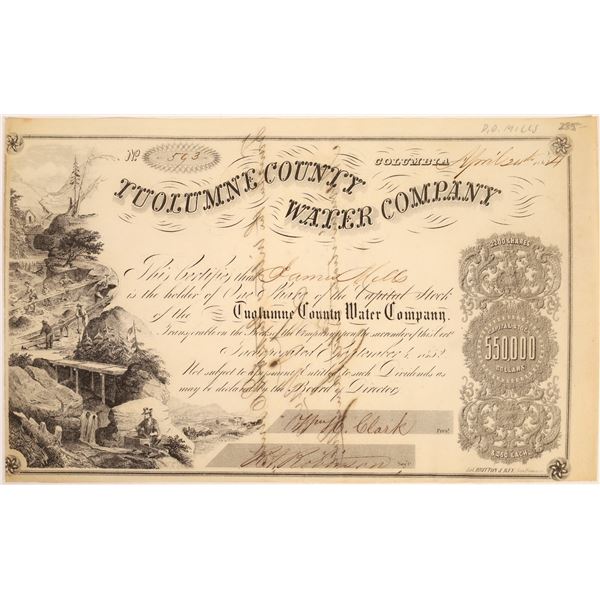 D.O. MILLS 285-
No. 563
COLUMBIA April 24th 1854
TUOLUMNE COUNTY
WATER COMPANY
This Certifies that James Mills
is the holder of One Share of the Capital Stock
of the Tuolumne County Water Company.
Transferable on the Books of the Company upon the surrender of this Cert.
Incorporated September 4, 1852
Not subject to assessment, Entitled to such Dividends as
may be declared by the Board of Directors
Clark Prest.
Robinson Sec'y.
2200 SHARES
CAPITAL STOCK
550000
DOLLARS
$.250 EACH.
Lith. BRITTON & REY. San Fran.